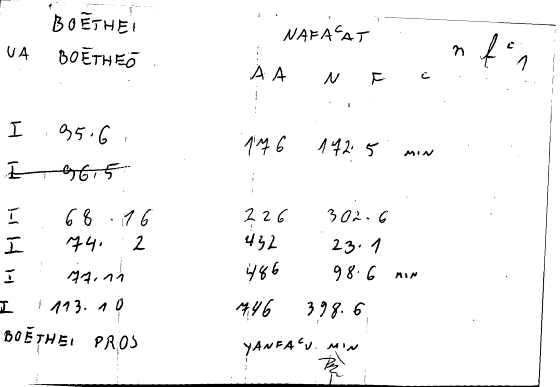 BOĒTHEI NAFAᶜAT n fᶜ 1
UA BOĒTHEŌ
AA N F C
I 95.6 176 172.5 MIN
I 96.5
I 68.16 226 302.6
I 74.2 432 23.1
I 77.11 486 98.6 MIN
I 113.10 746 398.6
BOĒTHEI PROS YANFAᶜU MIN